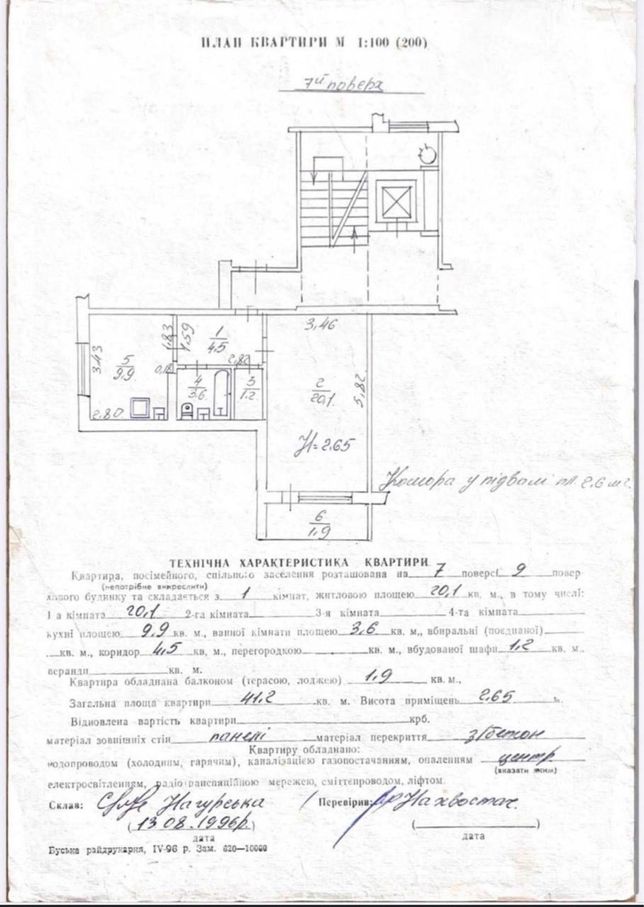 ПЛАН КВАРТИРИ М 1:100 (200)
7й поверх
3,46
1,83
1,59
1
4.5
2,82
3,43
5
9.9
4
3.6
3
1.2
2
20,1
5,82
2.80
H=2.65
Комора у підвалі пл 2.6 м²
6
1,9
ТЕХНІЧНА ХАРАКТЕРИСТИКА КВАРТИРИ
Квартира, посімейного, спільного заселення розташована на 7 поверсі 9 повер-
(непотрібне викреслити)
хового будинку та складається з 1 кімнат, житловою площею 20,1 кв. м., в тому числі:
1-а кімната 20,1 2-га кімната 3-я кімната 4-та кімната
кухні площею 9.9 кв. м., ванної кімнати площею 3,6 кв. м., вбиральні (поєднаної)
кв. м., коридор 4,5 кв. м., перегородкою кв. м., вбудованої шафи 1,2 кв. м.,
веранди кв. м.
Квартира обладнана балконом (терасою, лоджею) 1,9 кв. м.,
Загальна площа квартири 41.2 кв. м. Висота приміщень 2.65 м.
Відновлена вартість квартири крб.
матеріал зовнішніх стін панелі матеріал перекриття з/бетон
Квартиру обладнано:
водопроводом (холодним, гарячим), каналізацією газопостачанням, опаленням центр.
(вказати який)
електросвітленням, радіотрансляційною мережею, сміттепроводом, ліфтом.
Склав: Нагурська Перевірив: Нахвостач.
(13.08.1996р.) ( )
дата дата
Буська райдрукарня, IV-96 р. Зам. 620—10000